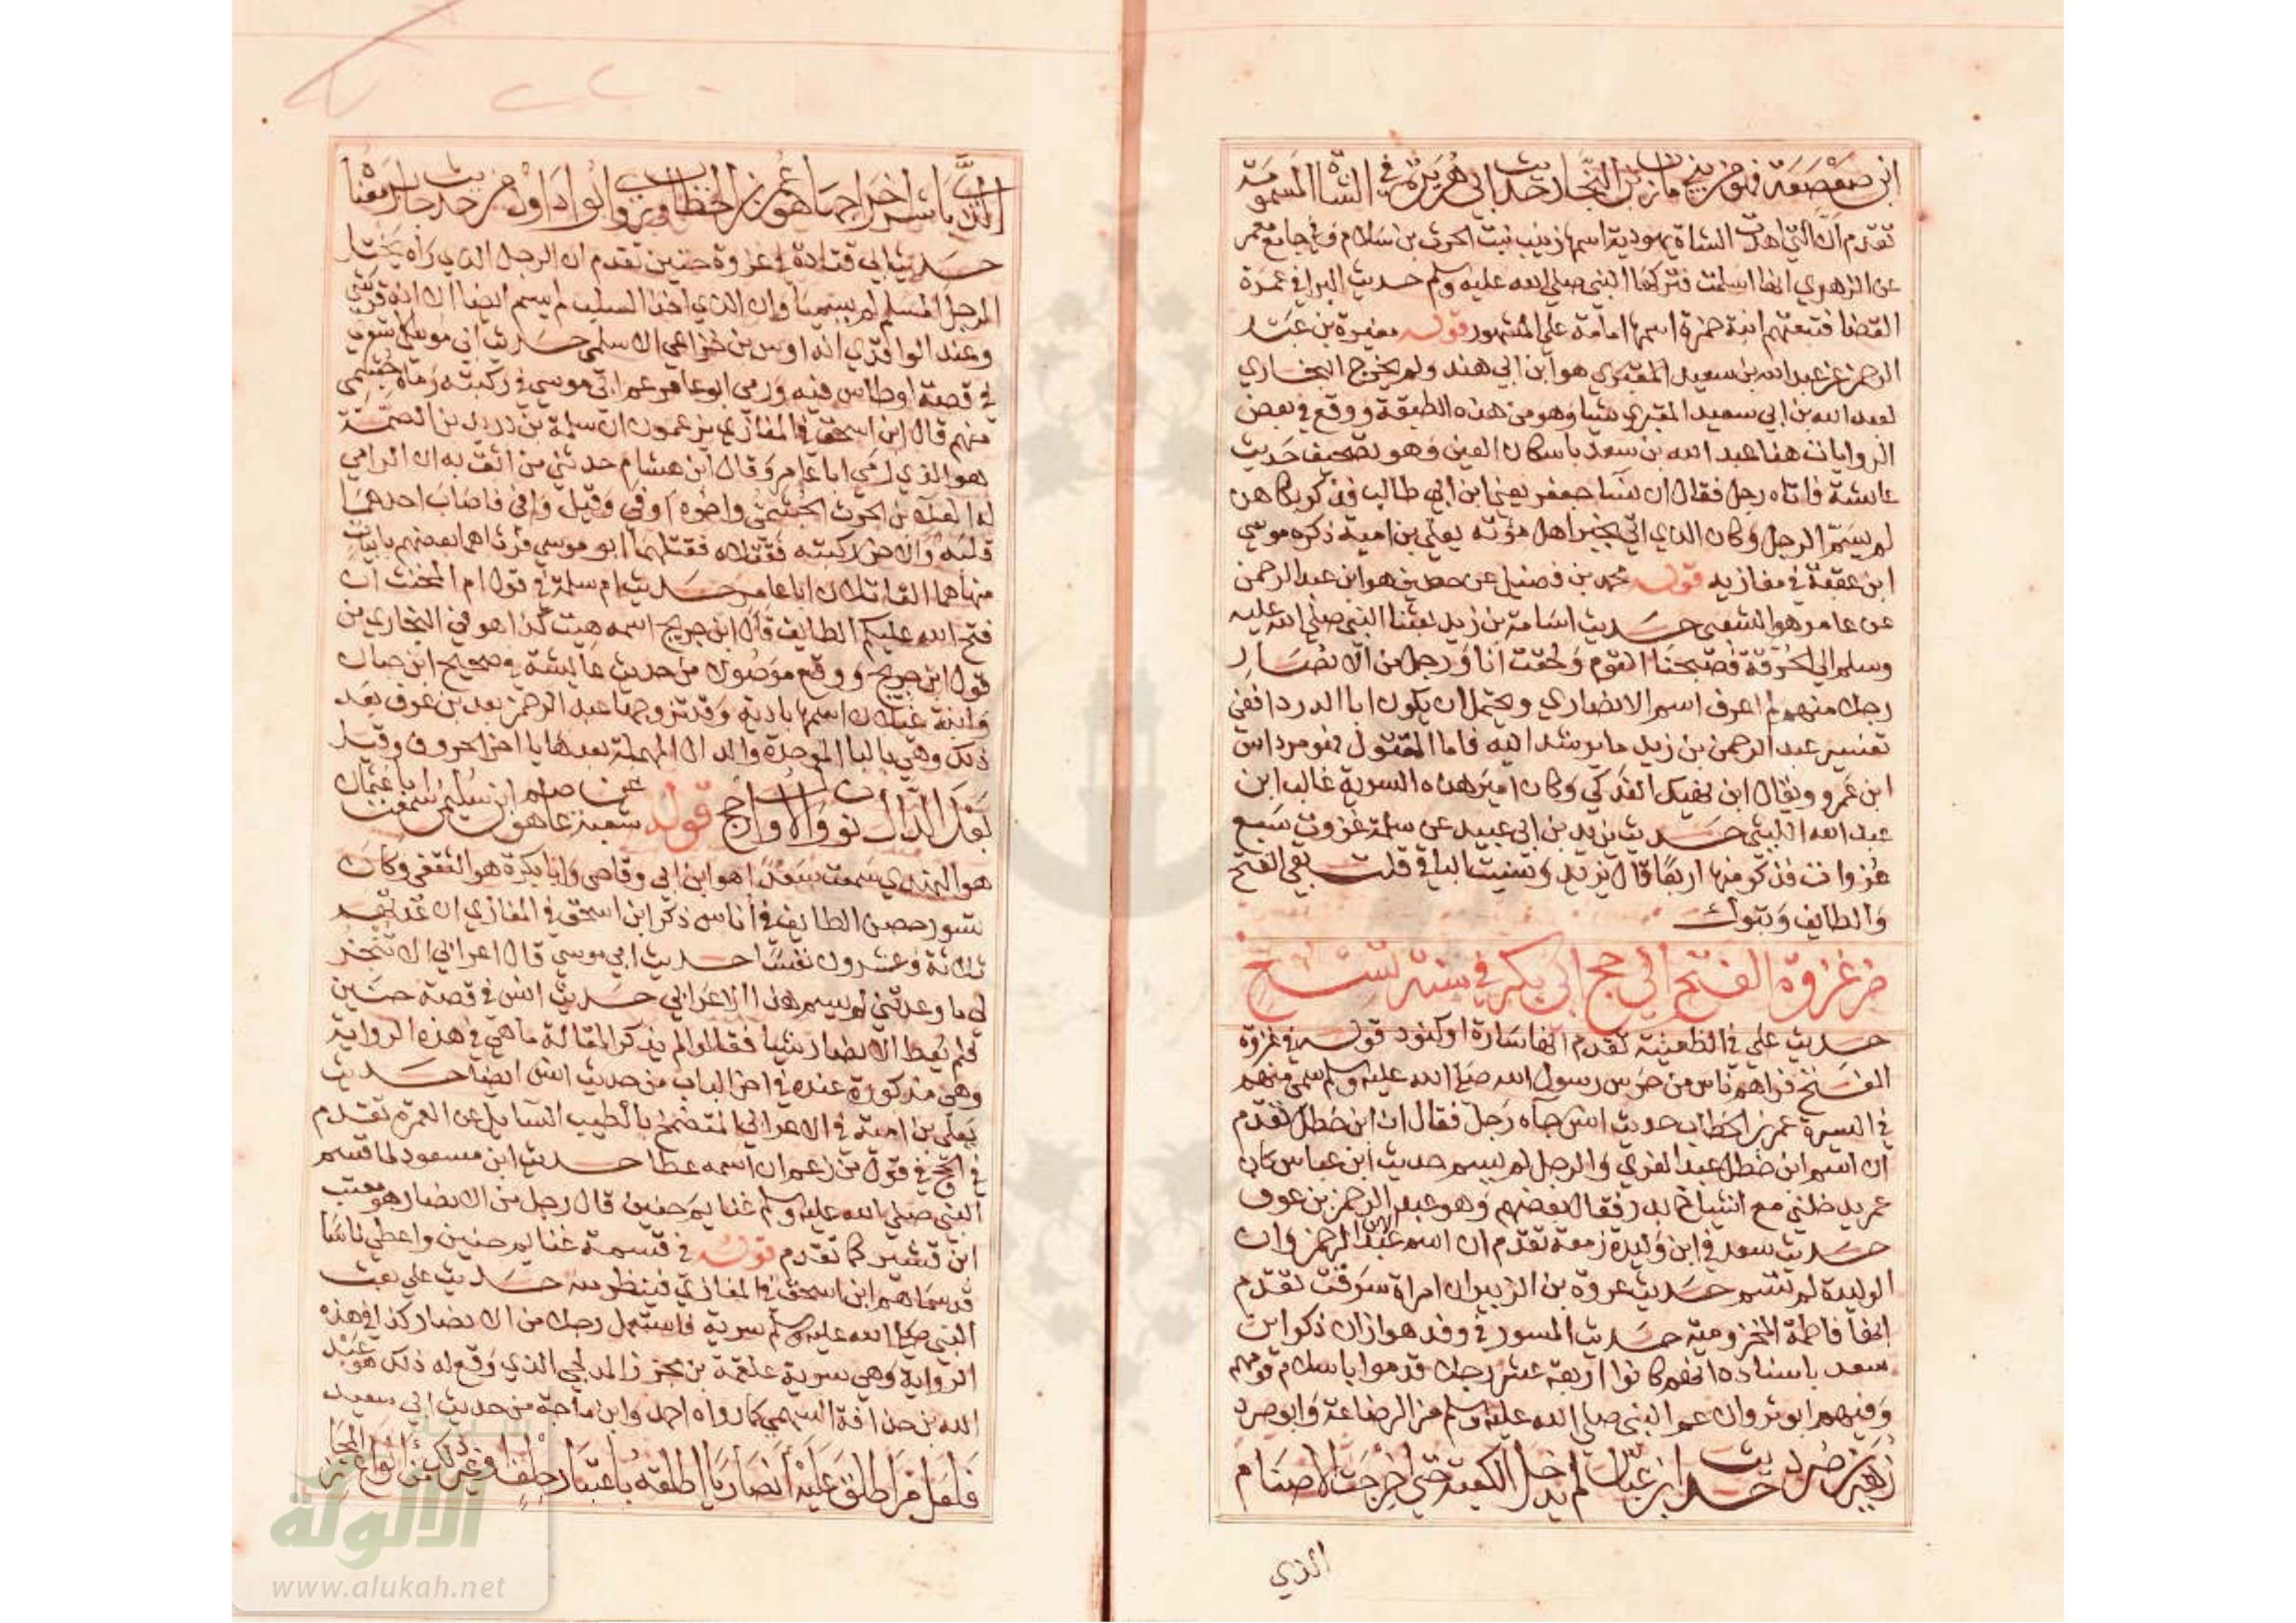 ابن صعصعة فهو من بني مازن بن النجار حديث ابي هريرة في الشاة المسمومة
تقدم ان التي اهدت الشاة يهودية اسمها زينب بنت الحرث بن سلام وفي جامع معمر
عن الزهري انها اسلمت فتركها النبي صلى الله عليه وسلم حديث البرا في عمرة
القضا فتبعتهم ابنة حمزة اسمها امامة على المشهور قوله مغيرة بن عبد
الرحمن عن عبد الله بن سعيد المقبري هو ابن ابي هند ولم يخرج البخاري
لعبد الله بن ابي سعيد المقبري شيا وهو من هذه الطبقة ووقع في بعض
الروايات هنا عبد الله بن سعد باسكان العين وهو تصحيف حديث
عايشة فاتاه رجل فقال ان نسا جعفر يعني ابن ابي طالب فذكر بكاهن
لم يسم الرجل وكان الذي اتى بخبر اهل مؤته يعلى بن امية ذكره موسى
ابن عقبة في مغازيه قوله محمد بن فضيل عن حصين هو ابن عبد الرحمن
عن عامر هو الشعبي حديث اسامة بن زيد بعثنا النبي صلى الله عليه
وسلم الى الحرقة فصبحنا القوم ولحقت انا ورجل من الانصار
رجلا منهم لم اعرف اسم الانصاري ويحتمل ان يكون ابا الدردا ففي
تفسير عبد الرحمن بن زيد ما يرشد اليه فاما المقتول فهو مرداس
ابن عمرو ويقال ابن نهيك الفدكي وكان امير هذه السرية غالب ابن
عبد الله الليثي حديث يزيد بن ابي عبيد عن سلمة غزوت سبع
غزوات فذكر منها اربعا قال يزيد ونسيت الباقي قلت بقي الفتح
والطايف وتبوك
من غزوة الفتح الى حج ابي بكر في سنة تسع
حديث علي في الظعينة تقدم انها سارة او كنود قوله في غزوة
الفتح فراهم ناس من حرس رسول الله صلى الله عليه وسلم سمي منهم
في السيرة عمر بن الخطاب حديث انس جاه رجل فقال ان ابن خطل تقدم
ان اسم ابن خطل عبد العزى والرجل لم يسم حديث ابن عباس كان
عمر يدخلني مع اشياخ بدر فقال بعضهم وهو عبد الرحمن بن عوف
حديث سعد في ابن وليدة زمعة تقدم ان اسم الابن عبد الرحمن وان
الوليدة لم تسم حديث عروة بن الزبير ان امراة سرقت تقدم
انها فاطمة المخزومية حديث المسور في وفد هوازن ذكر ابن
سعد باسناده انهم كانوا اربعة عشر رجلا قدموا باسلام قومهم
وفيهم ابو ثروان عم النبي صلى الله عليه وسلم من الرضاعة وابو صرد
زهير بن صرد حديث ابن عباس لم يدخل الكعبة حتى اخرجت الاصنام
الذي
الذي باشر اخراجها هو عمر بن الخطاب وروى ابو داود من حديث جابر معناه
حديث ابي قتادة في غزوة حنين تقدم ان الرجل الذي راه يختل
الرجل المسلم لم يسميا وان الذي اخذ السلب لم يسم ايضا الا انه قرشي
وعند الواقدي انه اوس بن خزاعي الاسلمي حديث ابي موسى الاشعري
في قصة اوطاس فيه ورمي ابو عامر عم ابي موسى في ركبته رماه جشمي
منهم قال ابن اسحق في المغازي يزعمون ان سلمة بن دريد بن الصمة
هو الذي رمى ابا عامر وقال ابن هشام حدثني من اثق به ان الرامي
له العلا بن الحرث الجشمي واخوه اوفى وقيل وافى فاصاب احدهما
قلبه والاخر ركبته فقتلاه فقتلهما ابو موسى فرثاهما بعضهم بابيات
منها هما القاتلان ابا عامر حديث ام سلمة في قول المخنث ان
فتح الله عليكم الطايف قال ابن جريج اسمه هيت كذا هو في البخاري من
قول ابن جريج ووقع موصولا من حديث عايشة في صحيح ابن حبان
وابنة غيلان اسمها بادية وقد تزوجها عبد الرحمن بن عوف بعد
ذلك وهي بالبا الموحدة والدال المهملة بعدها يا اخر الحروف وقيل
بعد الدال نون والاول ارجح قوله شعبة عن عاصم هو ابن سليمن سمعت ابا عثمان
هو النهدي سمعت سعدا هو ابن ابي وقاص وابا بكرة هو الثقفي وكان
تسور حصن الطايف في اناس ذكر ابن اسحق في المغازي ان عدتهم
ثلاثة وعشرون نفسا حديث ابي موسى قال اعرابي الا تنجز
لي ما وعدتني لم يسم هذا الاعرابي حديث انس في قصة حنين
فلم يعط الانصار شيا فقالوا لم يذكر المقالة ما هي في هذه الرواية
وهي مذكورة عنده في اخر الباب من حديث انس ايضا حديث
يعلى بن امية في الاعرابي المتضمخ بالطيب السايل عن العمرة تقدم
في الحج في قول من زعم ان اسمه عطا حديث ابن مسعود لما قسم
النبي صلى الله عليه وسلم غنايم حنين قال رجل من الانصار هو معتب
ابن قشير كما تقدم قوله في قسمة غنايم حنين واعطى ناسا
قد سماهم ابن اسحق في المغازي فينظر منه حديث علي بعث
النبي صلى الله عليه وسلم سرية فاستعمل رجلا من الانصار كذا في هذه
الرواية وهي سرية علقمة بن مجزز المدلجي الذي وقع له ذلك هو عبد
الله بن حذافة السهمي كما رواه احمد وابن ماجة من حديث ابي سعيد
فلعل من اطلق عليه انصاريا اطلقه باعتبار حلف او غير ذلك من انواع المجاز
الالوكة
www.alukah.net